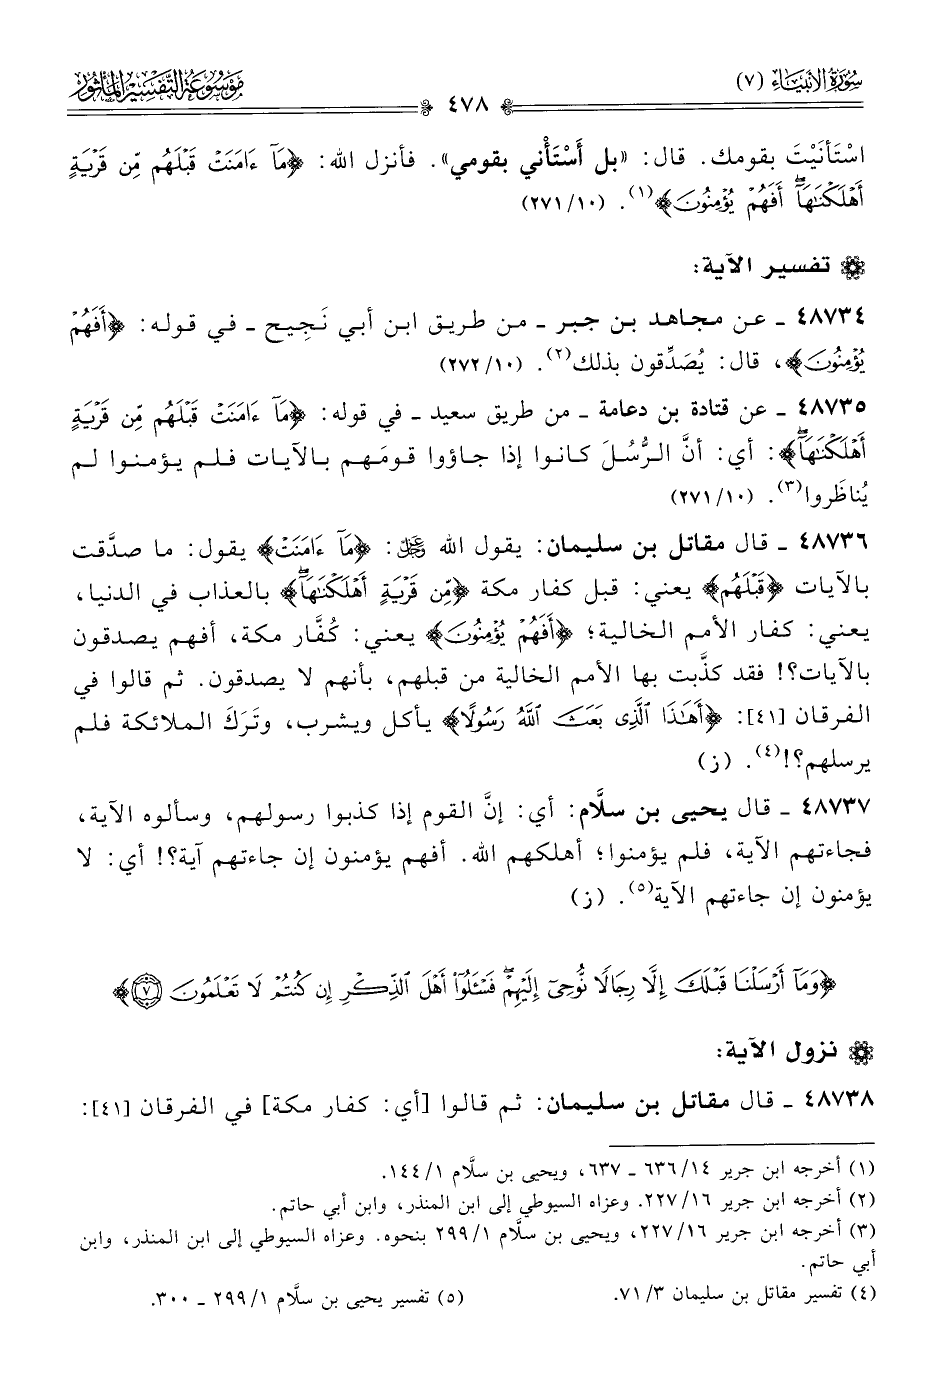 سُورَةُ الأَنْبِيَاء (٧)
٤٧٨
مَوْسُوعَةُ التَّفْسِيرِ المَأْثُورِ
اسْتَأْنَيْتَ بقومك. قال: «بل أَسْتَأْني بقومي». فأنزل الله: ﴿مَآ ءَامَنَتْ قَبْلَهُم مِّن قَرْيَةٍ
أَهْلَكْنَٰهَآۖ أَفَهُمْ يُؤْمِنُونَ﴾(١). (١٠/ ٢٧١)
تفسير الآية:
٤٨٧٣٤ ـ عن مجاهد بن جبر ـ من طريق ابن أبي نَجِيح ـ في قوله: ﴿أَفَهُمْ
يُؤْمِنُونَ﴾، قال: يُصَدِّقون بذلك(٢). (١٠/ ٢٧٢)
٤٨٧٣٥ ـ عن قتادة بن دعامة ـ من طريق سعيد ـ في قوله: ﴿مَآ ءَامَنَتْ قَبْلَهُم مِّن قَرْيَةٍ
أَهْلَكْنَٰهَآۖ﴾: أي: أنَّ الرُّسُلَ كانوا إذا جاؤوا قومَهم بالآيات فلم يؤمنوا لم
يُناظَروا(٣). (١٠/ ٢٧١)
٤٨٧٣٦ ـ قال مقاتل بن سليمان: يقول الله ﷿: ﴿مَآ ءَامَنَتْ﴾ يقول: ما صدَّقت
بالآيات ﴿قَبْلَهُم﴾ يعني: قبل كفار مكة ﴿مِّن قَرْيَةٍ أَهْلَكْنَٰهَآۖ﴾ بالعذاب في الدنيا،
يعني: كفار الأمم الخالية؛ ﴿أَفَهُمْ يُؤْمِنُونَ﴾ يعني: كُفَّار مكة، أفهم يصدقون
بالآيات؟! فقد كذَّبت بها الأمم الخالية من قبلهم، بأنهم لا يصدقون. ثم قالوا في
الفرقان [٤١]: ﴿أَهَٰذَا ٱلَّذِى بَعَثَ ٱللَّهُ رَسُولًا﴾ يأكل ويشرب، وتَرَكَ الملائكة فلم
يرسلهم؟!(٤). (ز)
٤٨٧٣٧ ـ قال يحيى بن سلَّام: أي: إنَّ القوم إذا كذبوا رسولهم، وسألوه الآية،
فجاءتهم الآية، فلم يؤمنوا؛ أهلكهم الله. أفهم يؤمنون إن جاءتهم آية؟! أي: لا
يؤمنون إن جاءتهم الآية(٥). (ز)
﴿وَمَآ أَرْسَلْنَا قَبْلَكَ إِلَّا رِجَالًا نُّوحِىٓ إِلَيْهِمْۖ فَسْـَٔلُوٓا۟ أَهْلَ ٱلذِّكْرِ إِن كُنتُمْ لَا تَعْلَمُونَ ٧﴾
نزول الآية:
٤٨٧٣٨ ـ قال مقاتل بن سليمان: ثم قالوا [أي: كفار مكة] في الفرقان [٤١]:
(١) أخرجه ابن جرير ١٤/ ٦٣٦ ـ ٦٣٧، ويحيى بن سلَّام ١/ ١٤٤.
(٢) أخرجه ابن جرير ١٦/ ٢٢٧. وعزاه السيوطي إلى ابن المنذر، وابن أبي حاتم.
(٣) أخرجه ابن جرير ١٦/ ٢٢٧، ويحيى بن سلَّام ١/ ٢٩٩ بنحوه. وعزاه السيوطي إلى ابن المنذر، وابن
أبي حاتم.
(٤) تفسير مقاتل بن سليمان ٣/ ٧١. (٥) تفسير يحيى بن سلَّام ١/ ٢٩٩ ـ ٣٠٠.